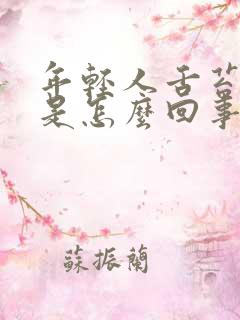 年輕人舌苔
是怎麼回事
蘇振蘭